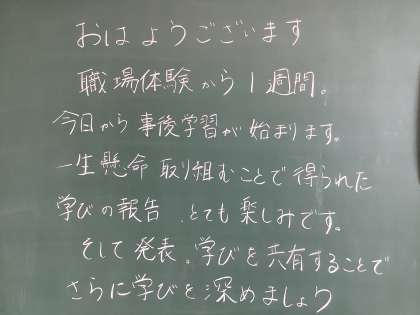 おはようございます
職場体験から1週間。
今日から事後学習が始まります。
一生懸命取り組むことで得られた
学びの報告、とても楽しみです。
そして発表。学びを共有することで
さらに学びを深めましょう